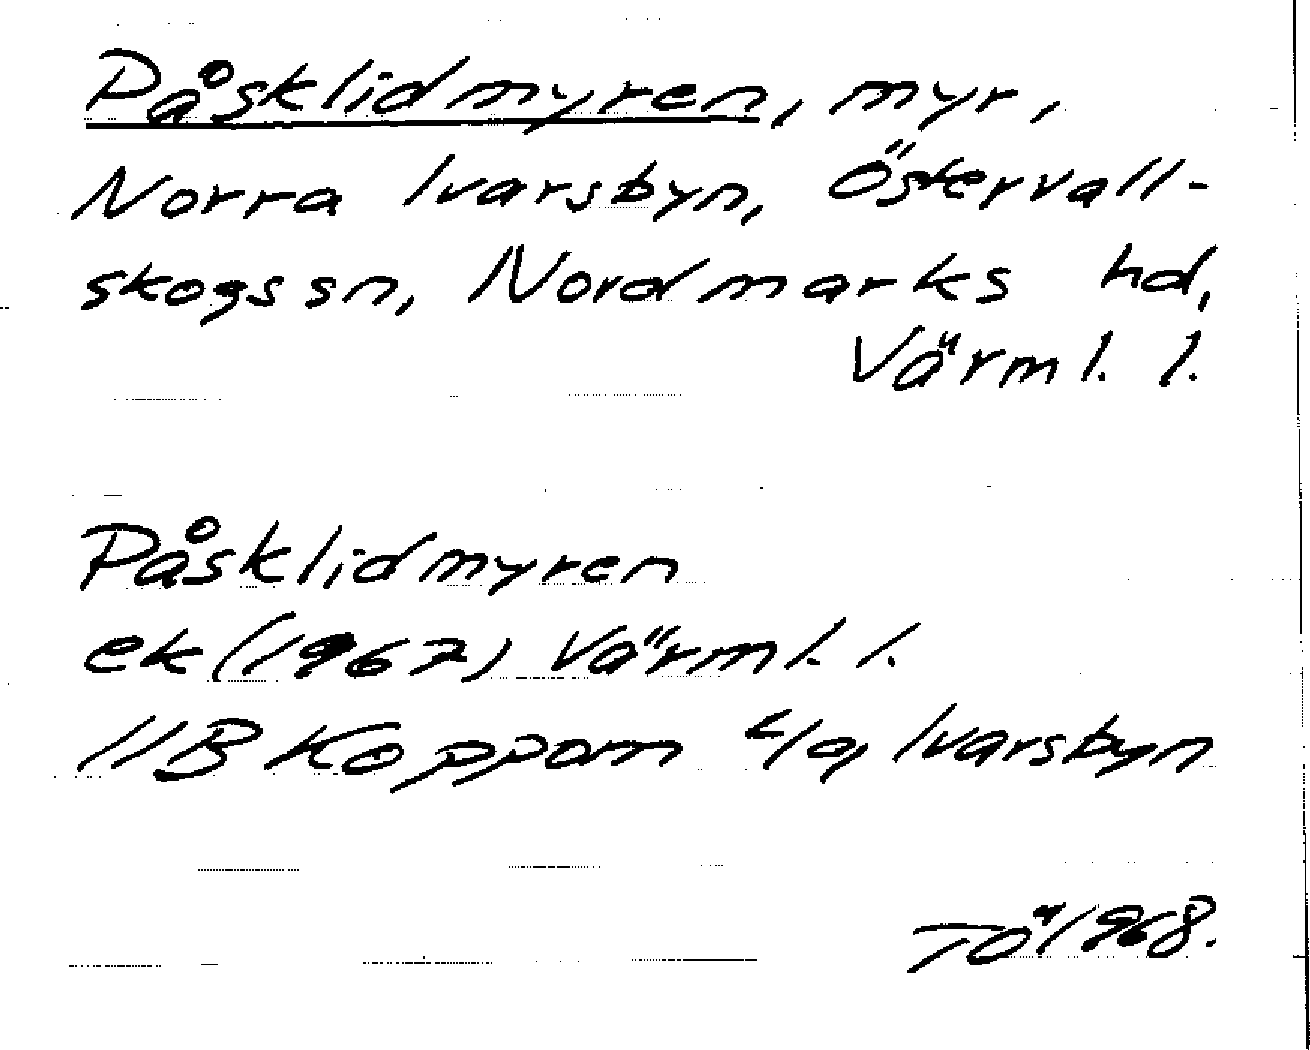 Påsklidmyren, myr,
Norra Ivarsbyn, Östervall-
skogs sn, Nordmarks hd,
Värml. l.
Påsklidmyren
ek (1967) Värml. l.
11B Koppom Ivarsbyn
TÖ 1968.